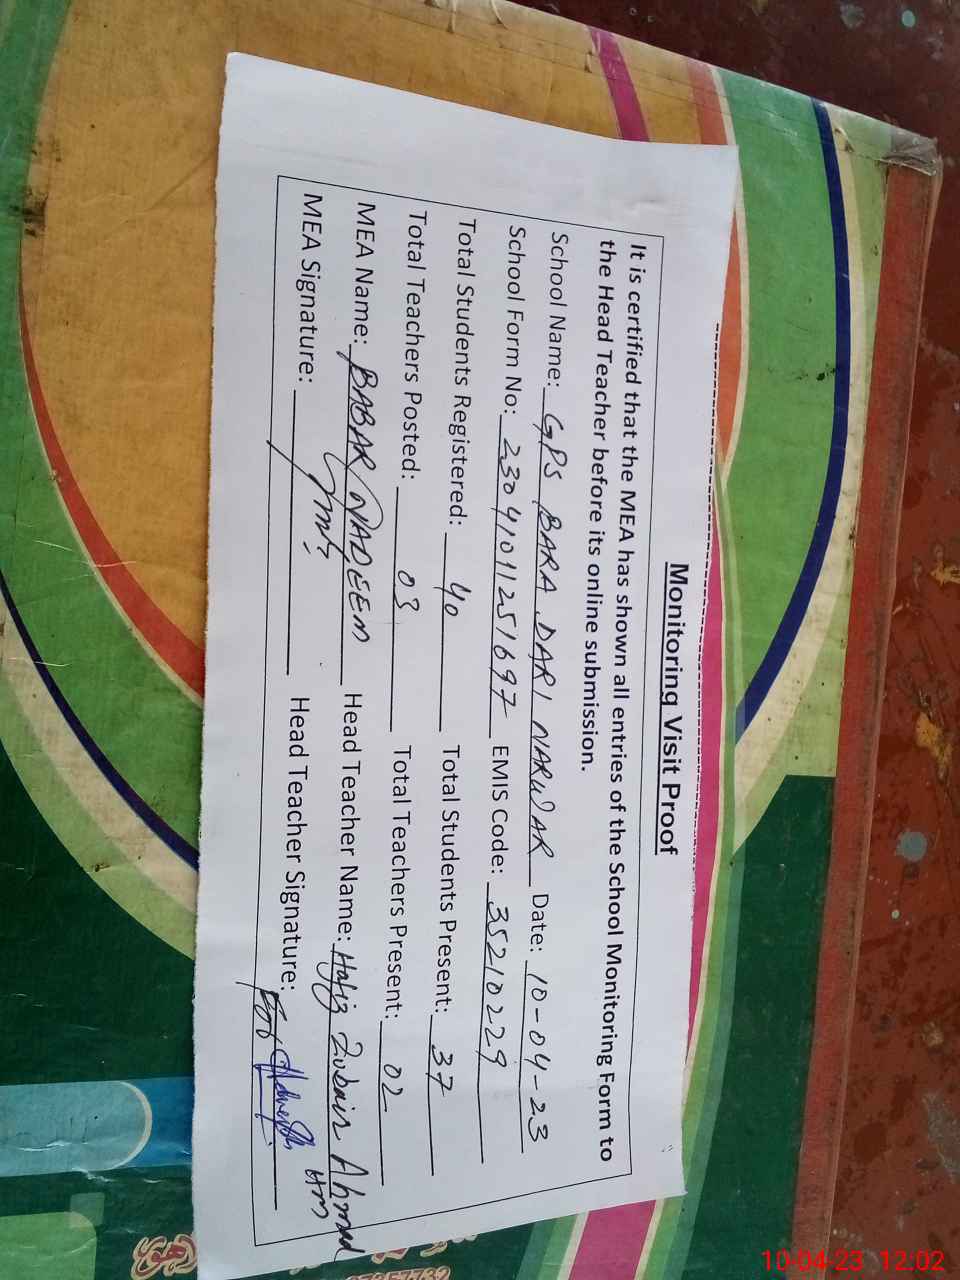 Monitoring Visit Proof
It is certified that the MEA has shown all entries of the School Monitoring Form to
the Head Teacher before its online submission.
School Name: GPS BARA DARI NARWAR Date: 10-04-23
School Form No: 2304101251697 EMIS Code: 35210229
Total Students Registered: 40 Total Students Present: 37
Total Teachers Posted: 03 Total Teachers Present: 02
MEA Name: BABAR NADEEM Head Teacher Name: Hafiz Zubair Ahmad
MEA Signature: Head Teacher Signature: For HM
10-04-23 12:02